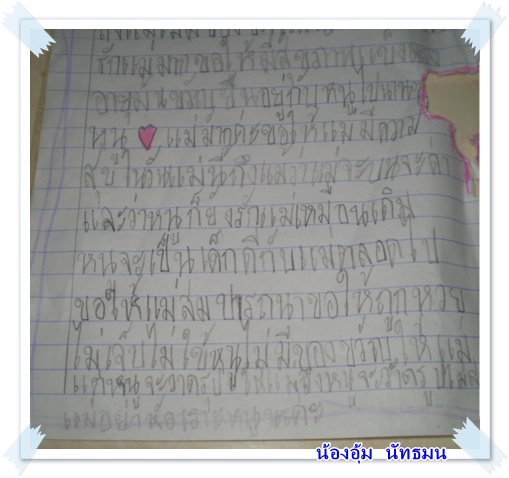 รักแม่มากขอให้มีสุขภาพแข็งแรง
อายุมั่นขวัญยืนอยู่กับหนูไปนานๆ
หนู แม่มากค่ะขอให้แม่มีความ
สุขในวันแม่นี้ถึงแม่ว่าแม่จะบ่นจะด่า
และว่าหนูก็ยังรักแม่เหมือนเดิม
หนูจะเป็นเด็กดีกับแม่ตลอดไป
ขอให้แม่สมปารถนาขอให้ถูกหวย
ไม่เจ็บไม่ไข้หนูไม่มีของขวัญให้แม่
แต่หนูจะวาดรูปให้แม่ถึงหนูจะวาดรูปไม่ส
แม่อย่าหัวเราะหนูนะค่ะ
น้องอุ้ม นัทธมน